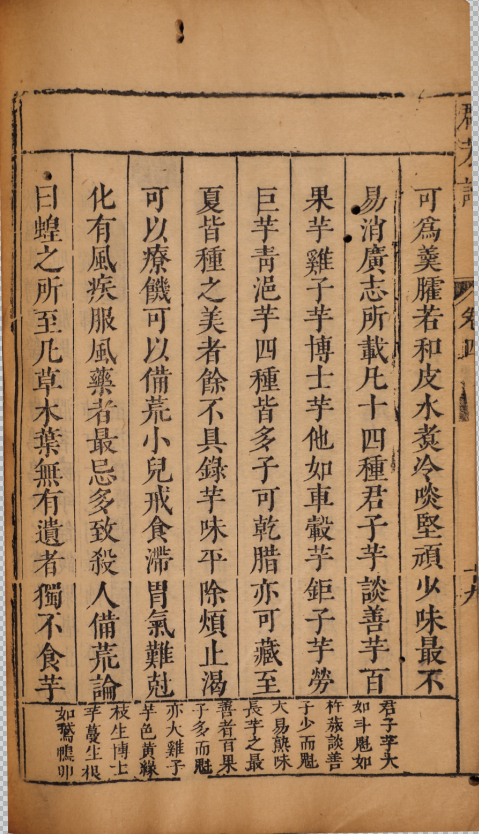 可爲羹臛若和皮水煮冷啖堅頑少味最不
易消廣志所載凡十四種君子芋談善芋百
果芋雞子芋博士芋他如車轂芋鉅子芋勞
巨芋青浥芋四種皆多子可乾腊亦可藏至
夏皆種之美者餘不具錄芋味平除煩止渴
可以療饑可以備荒小兒戒食滯胃氣難尅
化有風疾服風藥者最忌多致殺人備荒論
曰蝗之所至凡草木葉無有遺者獨不食芋
君子芋大
如斗魁如
杵簇談善
子少而魁
大易熟味
長芋之最
善者百果
子多而魁
亦大雞子
芋色黃緣
枝生博士
芋蔓生根
如鵞鴨卵
卷四
十九